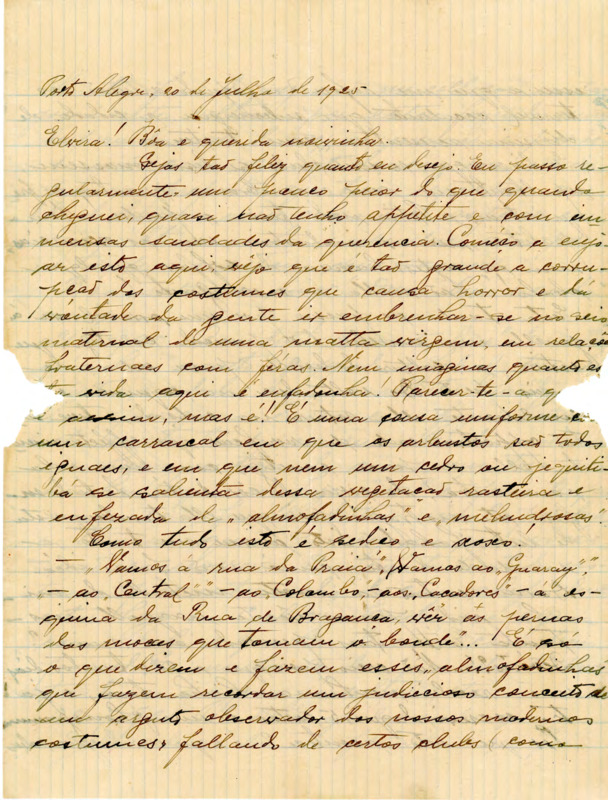 Porto Alegre, 20 de Julho de 1925
Elvira! Bôa e querida noivinha.
Sejas tão feliz quanto eu desejo. Eu passo re-
gularmente, um pouco peior do que quando
cheguei, quasi não tenho appetite e com im-
mensas saudades da querencia. Coméço a enjo-
ar isto aqui, vejo que é tão grande a corru-
pção dos costumes que causa horror e dá
vontade da gente ir embrenhar-se no seio
maternal de uma matta virgem, em relações
fraternaes com féras. Nem imaginas quanto es-
ta vida aqui é enfadonha! Parecer-te-á q
assim, mas é! É uma cousa uniforme c
um carrascal em que os arbustos são todos
iguaes, e em que nem um cedro ou jequiti-
bá se salienta dessa vegetação rasteira e
enfezada de „almofadinhas" e „melindrosas".
Como tudo isto é sediço e xoxo.
— „Vamos a rua da Praia", „Vamos ao „Guarany",
— ao „Central" — ao „Colombo", — aos „Caçadores" — a es-
quina da Rua de Bragança, vêr as pernas
das moças que tomam o bonde"... É só
o que dizem e fazem esses „almofadinhas
que fazem recordar um judicioso conceito de
um arguto observador dos nossos modernos
costumes, fallando de certos clubs (como